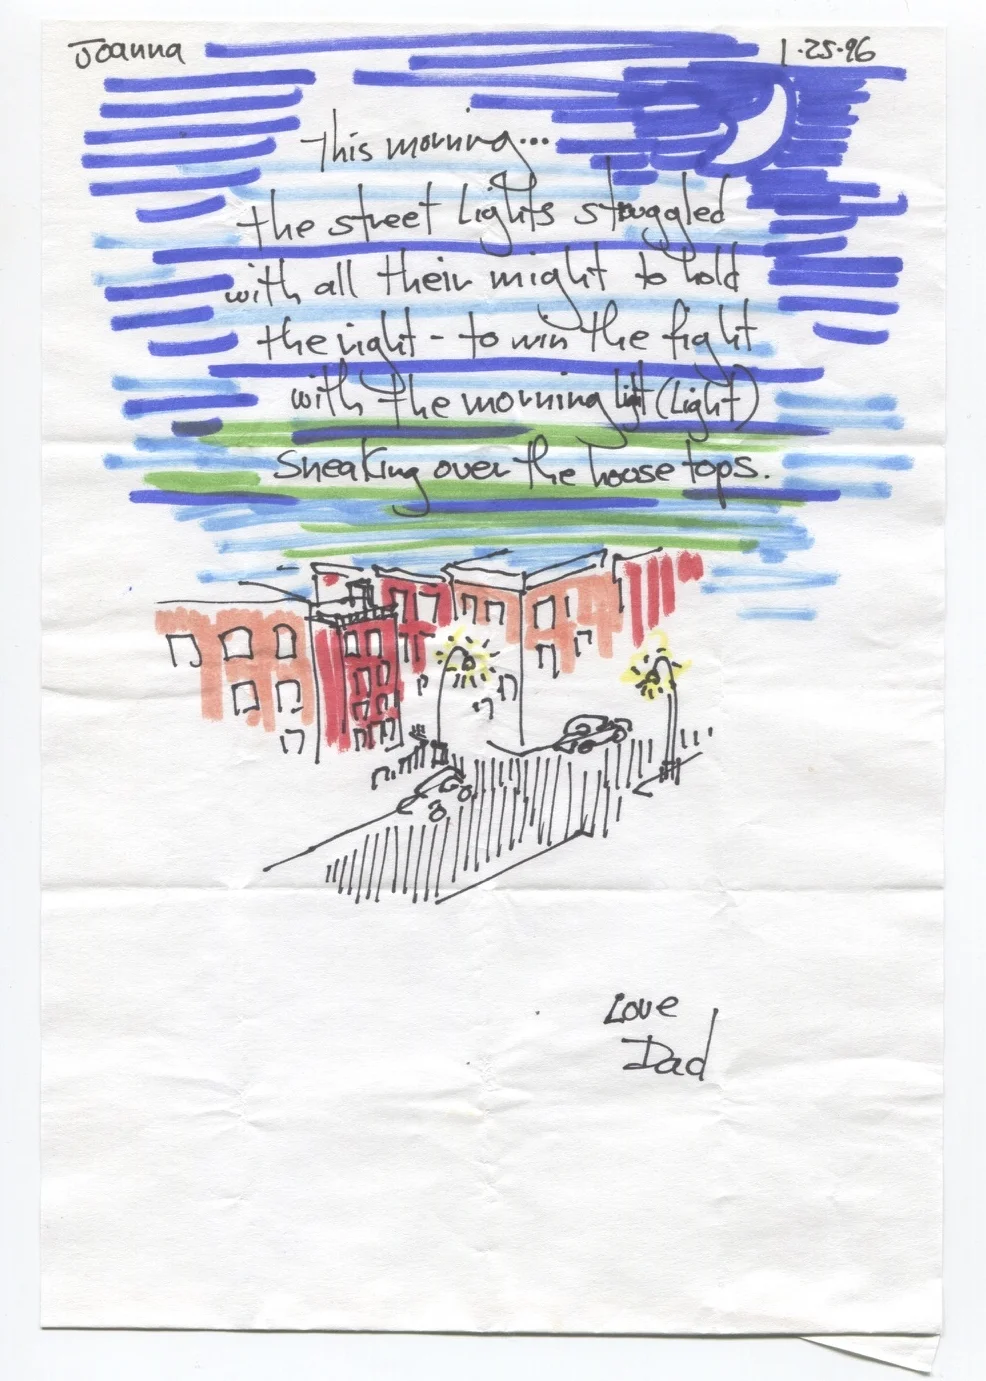 Joanna
1-25-96
This morning...
the street Lights struggled
with all their might to hold
the night - to win the fight
with the morning light (Light)
Sneaking over the house tops.
Love
Dad